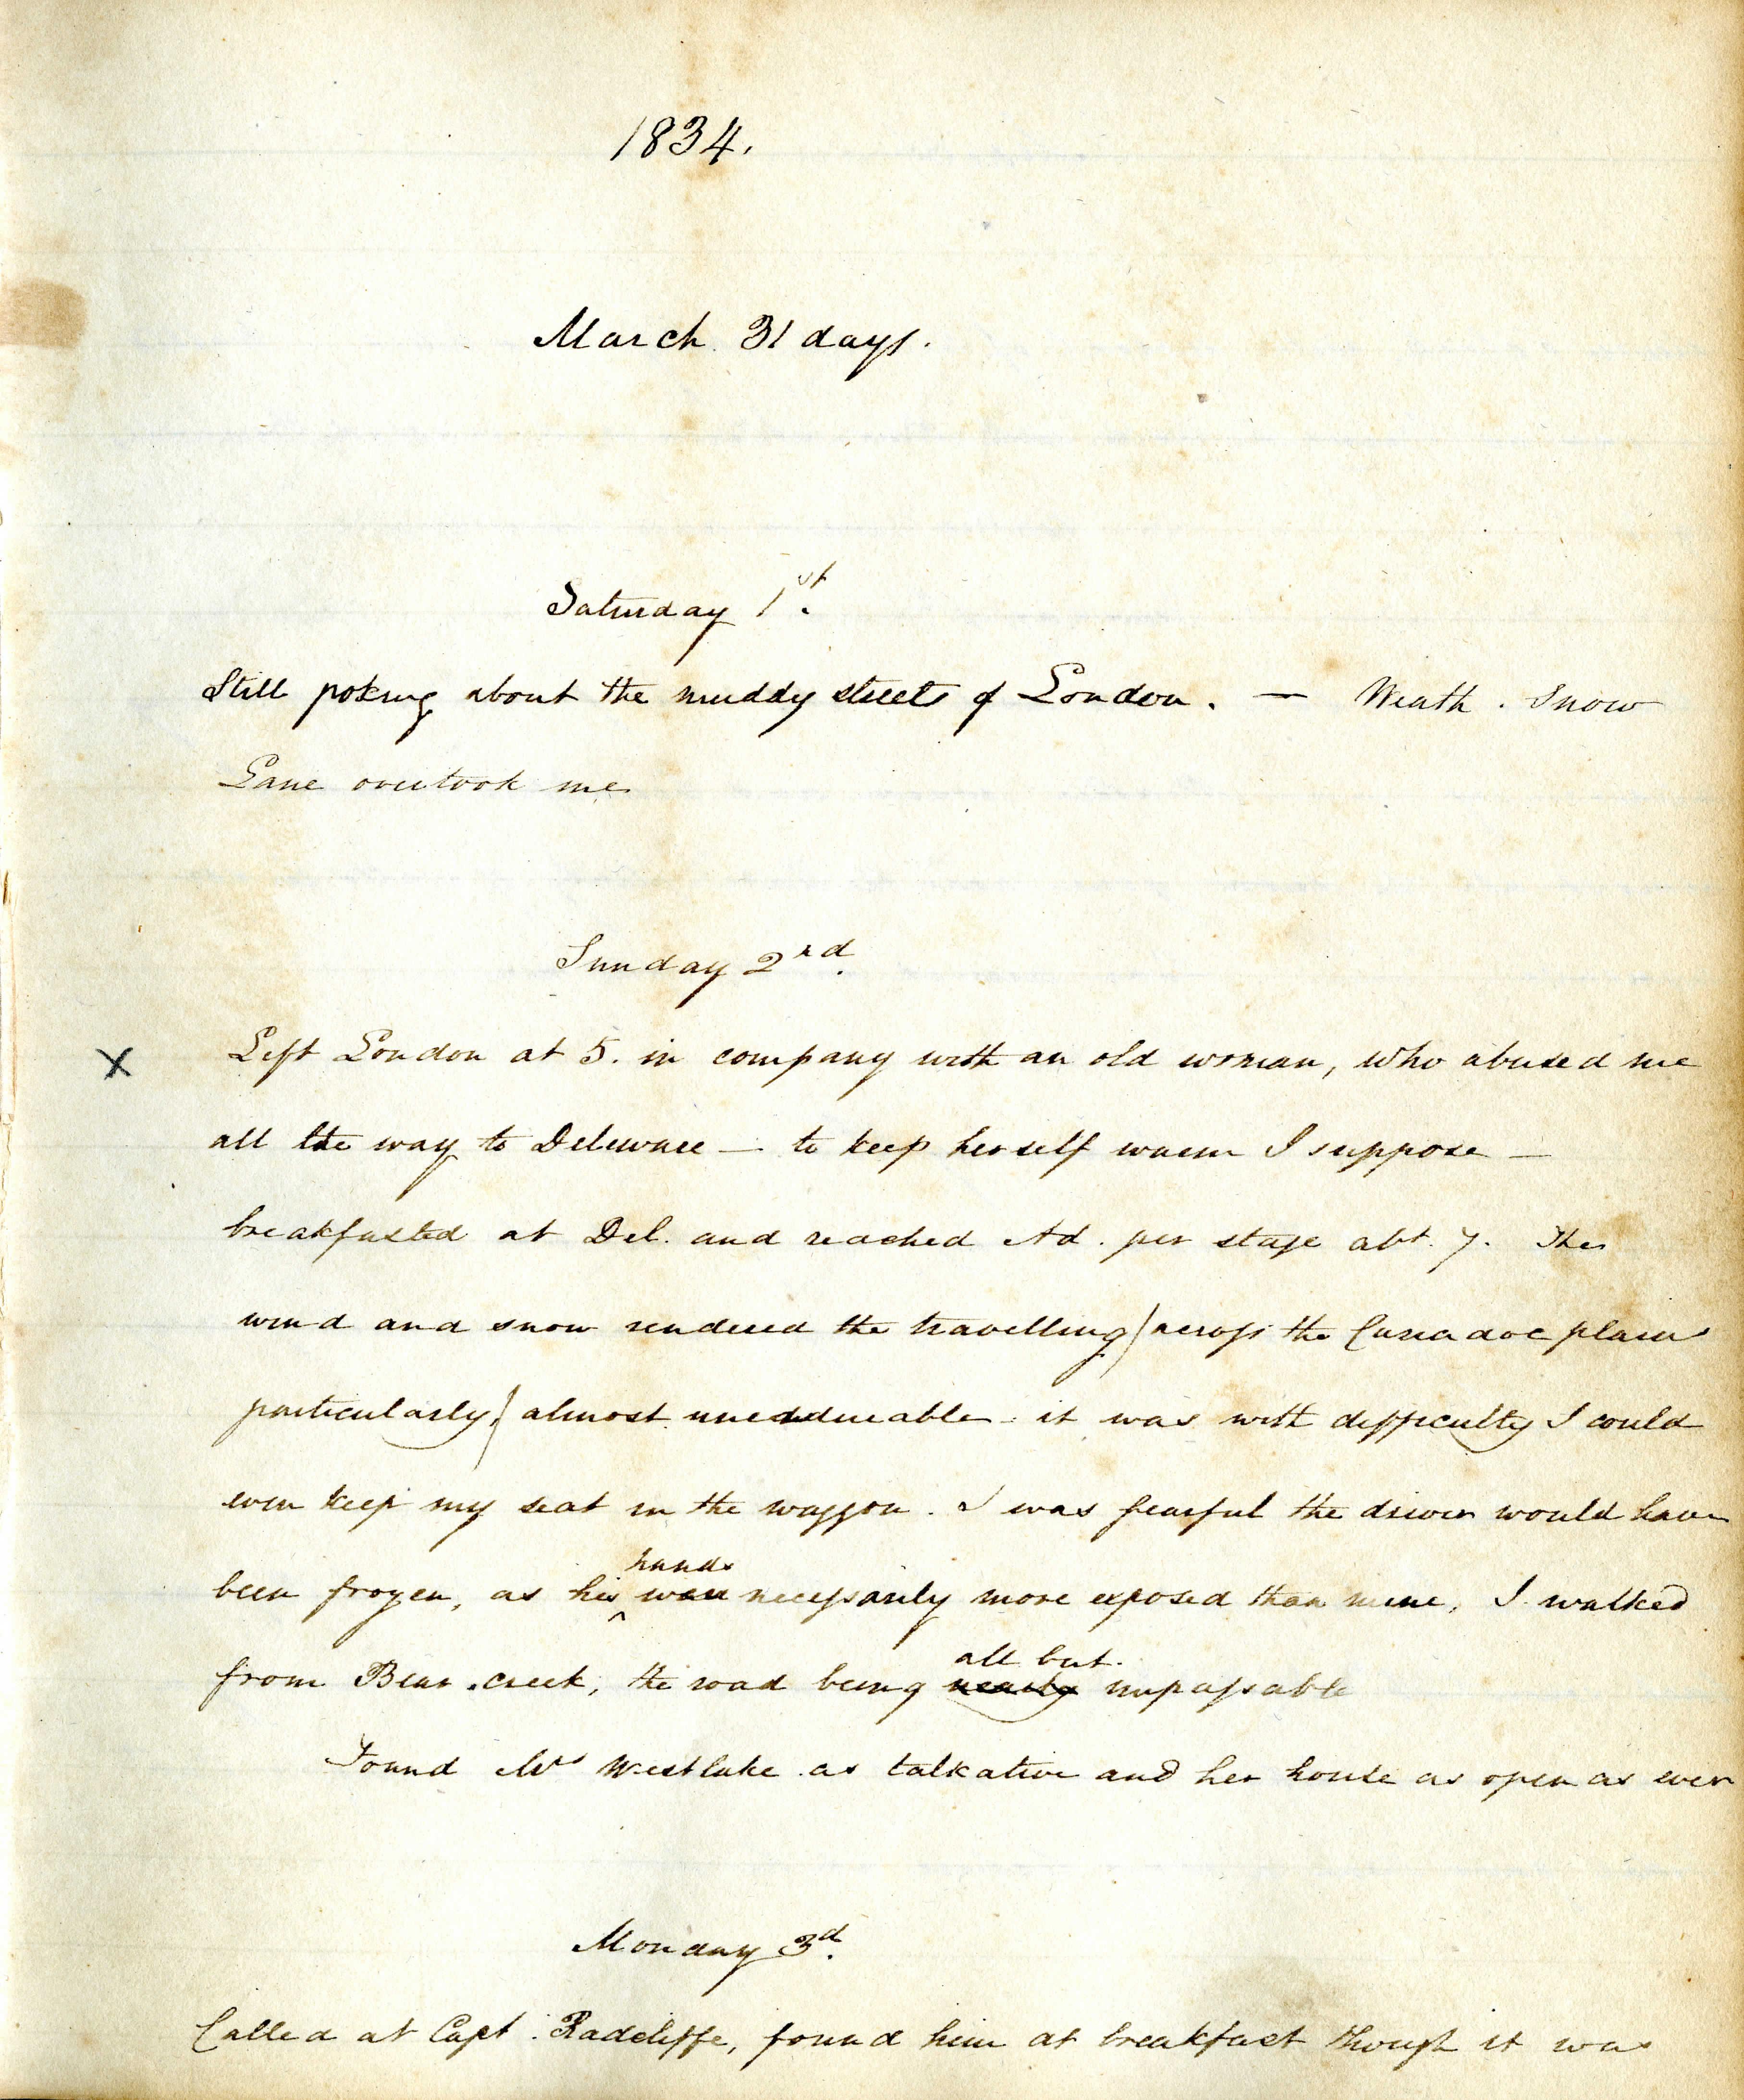 1834.
March 31 days.
Saturday 1st.
Still poking about the muddy streets of London. — Weath. Snow
Lane overtook me
Sunday 2nd.
X Left London at 5. in company with an old woman, who abused me
all the way to Deleware — to keep herself warm I suppose —
breakfasted at Del. and reached Ad. per stage abt. 7. The
wind and snow rendered the travelling (across the Caradoc plains
particularly,) almost unendureable - it was with difficulty I could
even keep my seat in the waggon. I was fearful the driver would have
been frozen, as his ^ hands were necessarily more exposed than mine. I walked
from Bear creek, the road being nearly all but impassable
Found Mrs Westlake as talkative and her house as open as ever
Monday 3d.
Called at Capt. Radcliffe, found him at breakfast though it was